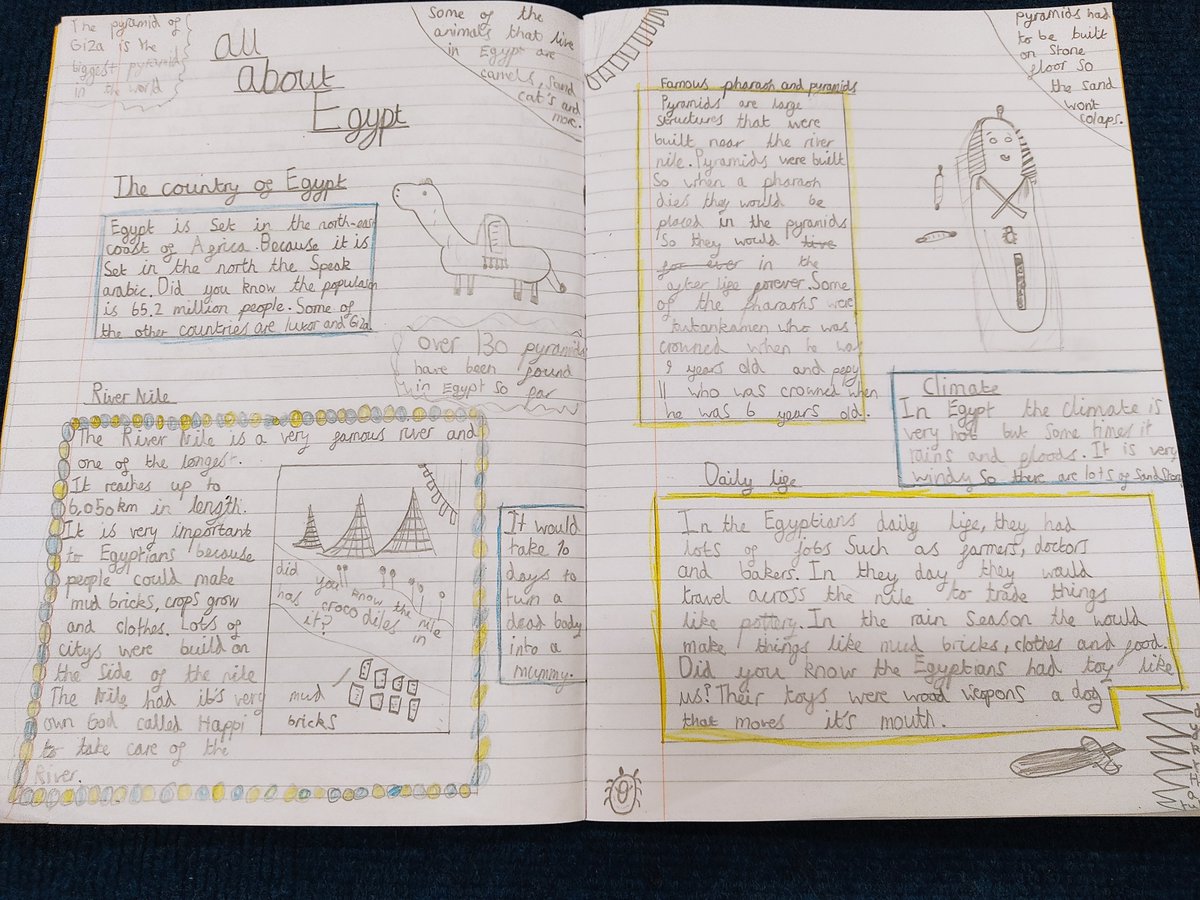 The pyramid of
Giza is the
biggest pyramid
in the world
all
about
Egypt
Some of the
animals that live
in Egypt are
camels, sand
cat's and
more.
The country of Egypt
Egypt is set in the north-east
coast of Africa. Because it is
Set in the north the Speak
arabic. Did you know the population
is 65.2 million people. Some of
the other countries are luxor and Giza
over 130 pyramids
have been found
in Egypt so far
River Nile
The River Nile is a very famous river and
one of the longest.
It reaches up to
6,050km in length.
It is very important
to Egyptians because
people could make
mud bricks, crops grow
and clothes. Lots of
citys were build on
the side of the nile
The Nile had it's very
own God called Happi
to take care of the
River.
did you know the nile
has crocodiles in
it?
mud
bricks
It would
take 70
days to
turn a
dead body
into a
mummy.
Famous pharaoh and pyramids
Pyramids are large
structures that were
built near the river
nile. Pyramids were built
So when a pharaoh
dies they would be
placed in the pyramids
So they would live
for ever in the
after life forever. Some
of the pharaohs were
tutankamen who was
crowned when he was
9 years old and pepy
II who was crowned when
he was 6 years old.
pyramids had
to be built
on Stone
floor so
the sand
wont
colaps.
Climate
In Egypt the climate is
very hot but some times it
rains and floods. It is very
windy So there are lots of Sand Storm
Daily life
In the Egyptians daily life, they had
lots of jobs Such as farmers, doctors
and bakers. In they day they would
travel across the nile to trade things
like pottery. In the rain season the would
make things like mud bricks, clothes and food.
Did you know the Egyptians had toy like
us? Their toys were wood weapons a dog
that moves it's mouth.